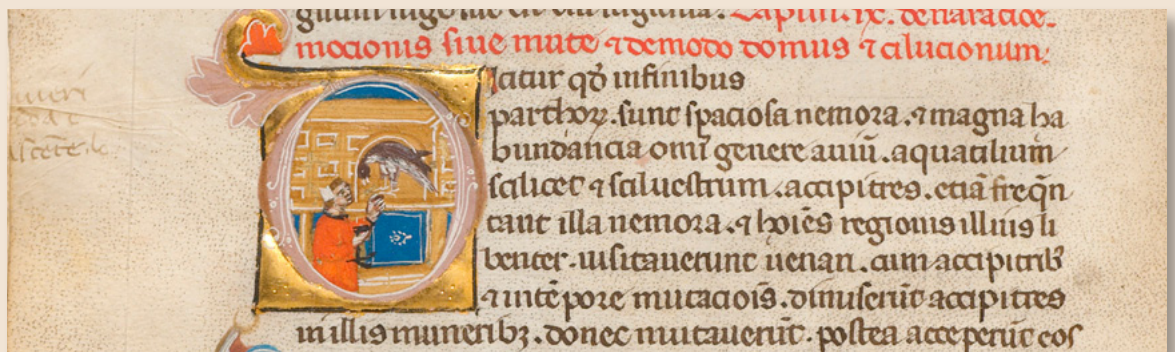 mocionis siue mute ⁊ de modo domus ⁊ cilucionum.
Dicitur qđ in finibus
parthoꝝ. sunt spaciosa nemora. ⁊ magna ha
bundancia omī genere auiū. aquatilium
scilicet ⁊ siluestrium. accipitres. etiā freqͥn
tant illa nemora. ⁊ hoīes regionis illius li
benter. uisitauerunt uenan. cum accipitrib᷒
⁊ in tēpore mutaciois̄. dimiserūt accipitres
in illis muneribꝫ. donec mutauerūt. postea acceperūt eos